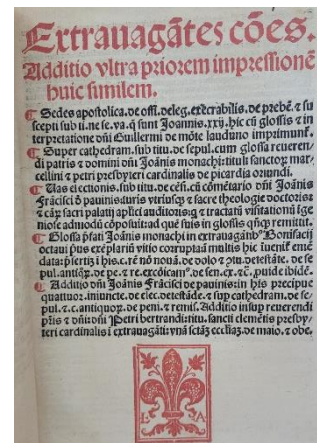 Extrauagãtes cões.
Additio vltra priorem impressionẽ
huic similem.
¶ Sedes apostolica. de off. deleg. execrabilis. de prebẽ. & su
scepti sub ti. ne se. va. q̃ sunt Joannis. xxij. hic cũ glossis & in
terpretatione dñi Guillermi de mõte lauduno imprimunt̃.
¶ Super cathedram. sub titu. de sepul. cum glosa reueren
di patris & domini dñi Joãnis monachi: tituli sanctoꝝ mar
cellini & petri presbyteri cardinalis de picardia oriundi.
¶ Uas electionis. sub titu. de cẽs. cũ cõmẽtario dñi Joãnis
Frãcisci õ pauinis: iuris vtriusq̃ & sacre theologie doctoris:
& cãꝝ sacri palatij aplici auditoris: q̃ & tractatũ visitationũ ĩge
niose admodũ cõposuit: ad que suis in glosis q̃nq̃ remittit̃.
¶ Glosa p̃fati Joãnis monachi in extrauagãnd' Bonifacij
octaui p̃us exẽplariũ vitio corruptã multis hic iuenit̃ emẽ
data: p̃sertiȝ i his. c. rẽ nõ nouã. de dolo & ↄtu. detestãde. de se
pul. antiq̃ȝ. de pe. & re. excõicam'. de sen. ex. &c̃. puide ibidẽ.
¶ Additio dñi Joãnis Frãcisci de pauinis: in his precipue
quattuor. iniuncte. de elec. detestãde. & sup cathedram. de se-
pul. & c. antiquoꝝ. de peni. & remis. Additio insup reuerendi
p̃ris & dñi: dñi Petri bertrandi: titu. sancti clemẽtis presby-
teri cardinalis i extrauagãti: vnã sctãȝ ecc̃liãȝ. de maio. & obe.
L A